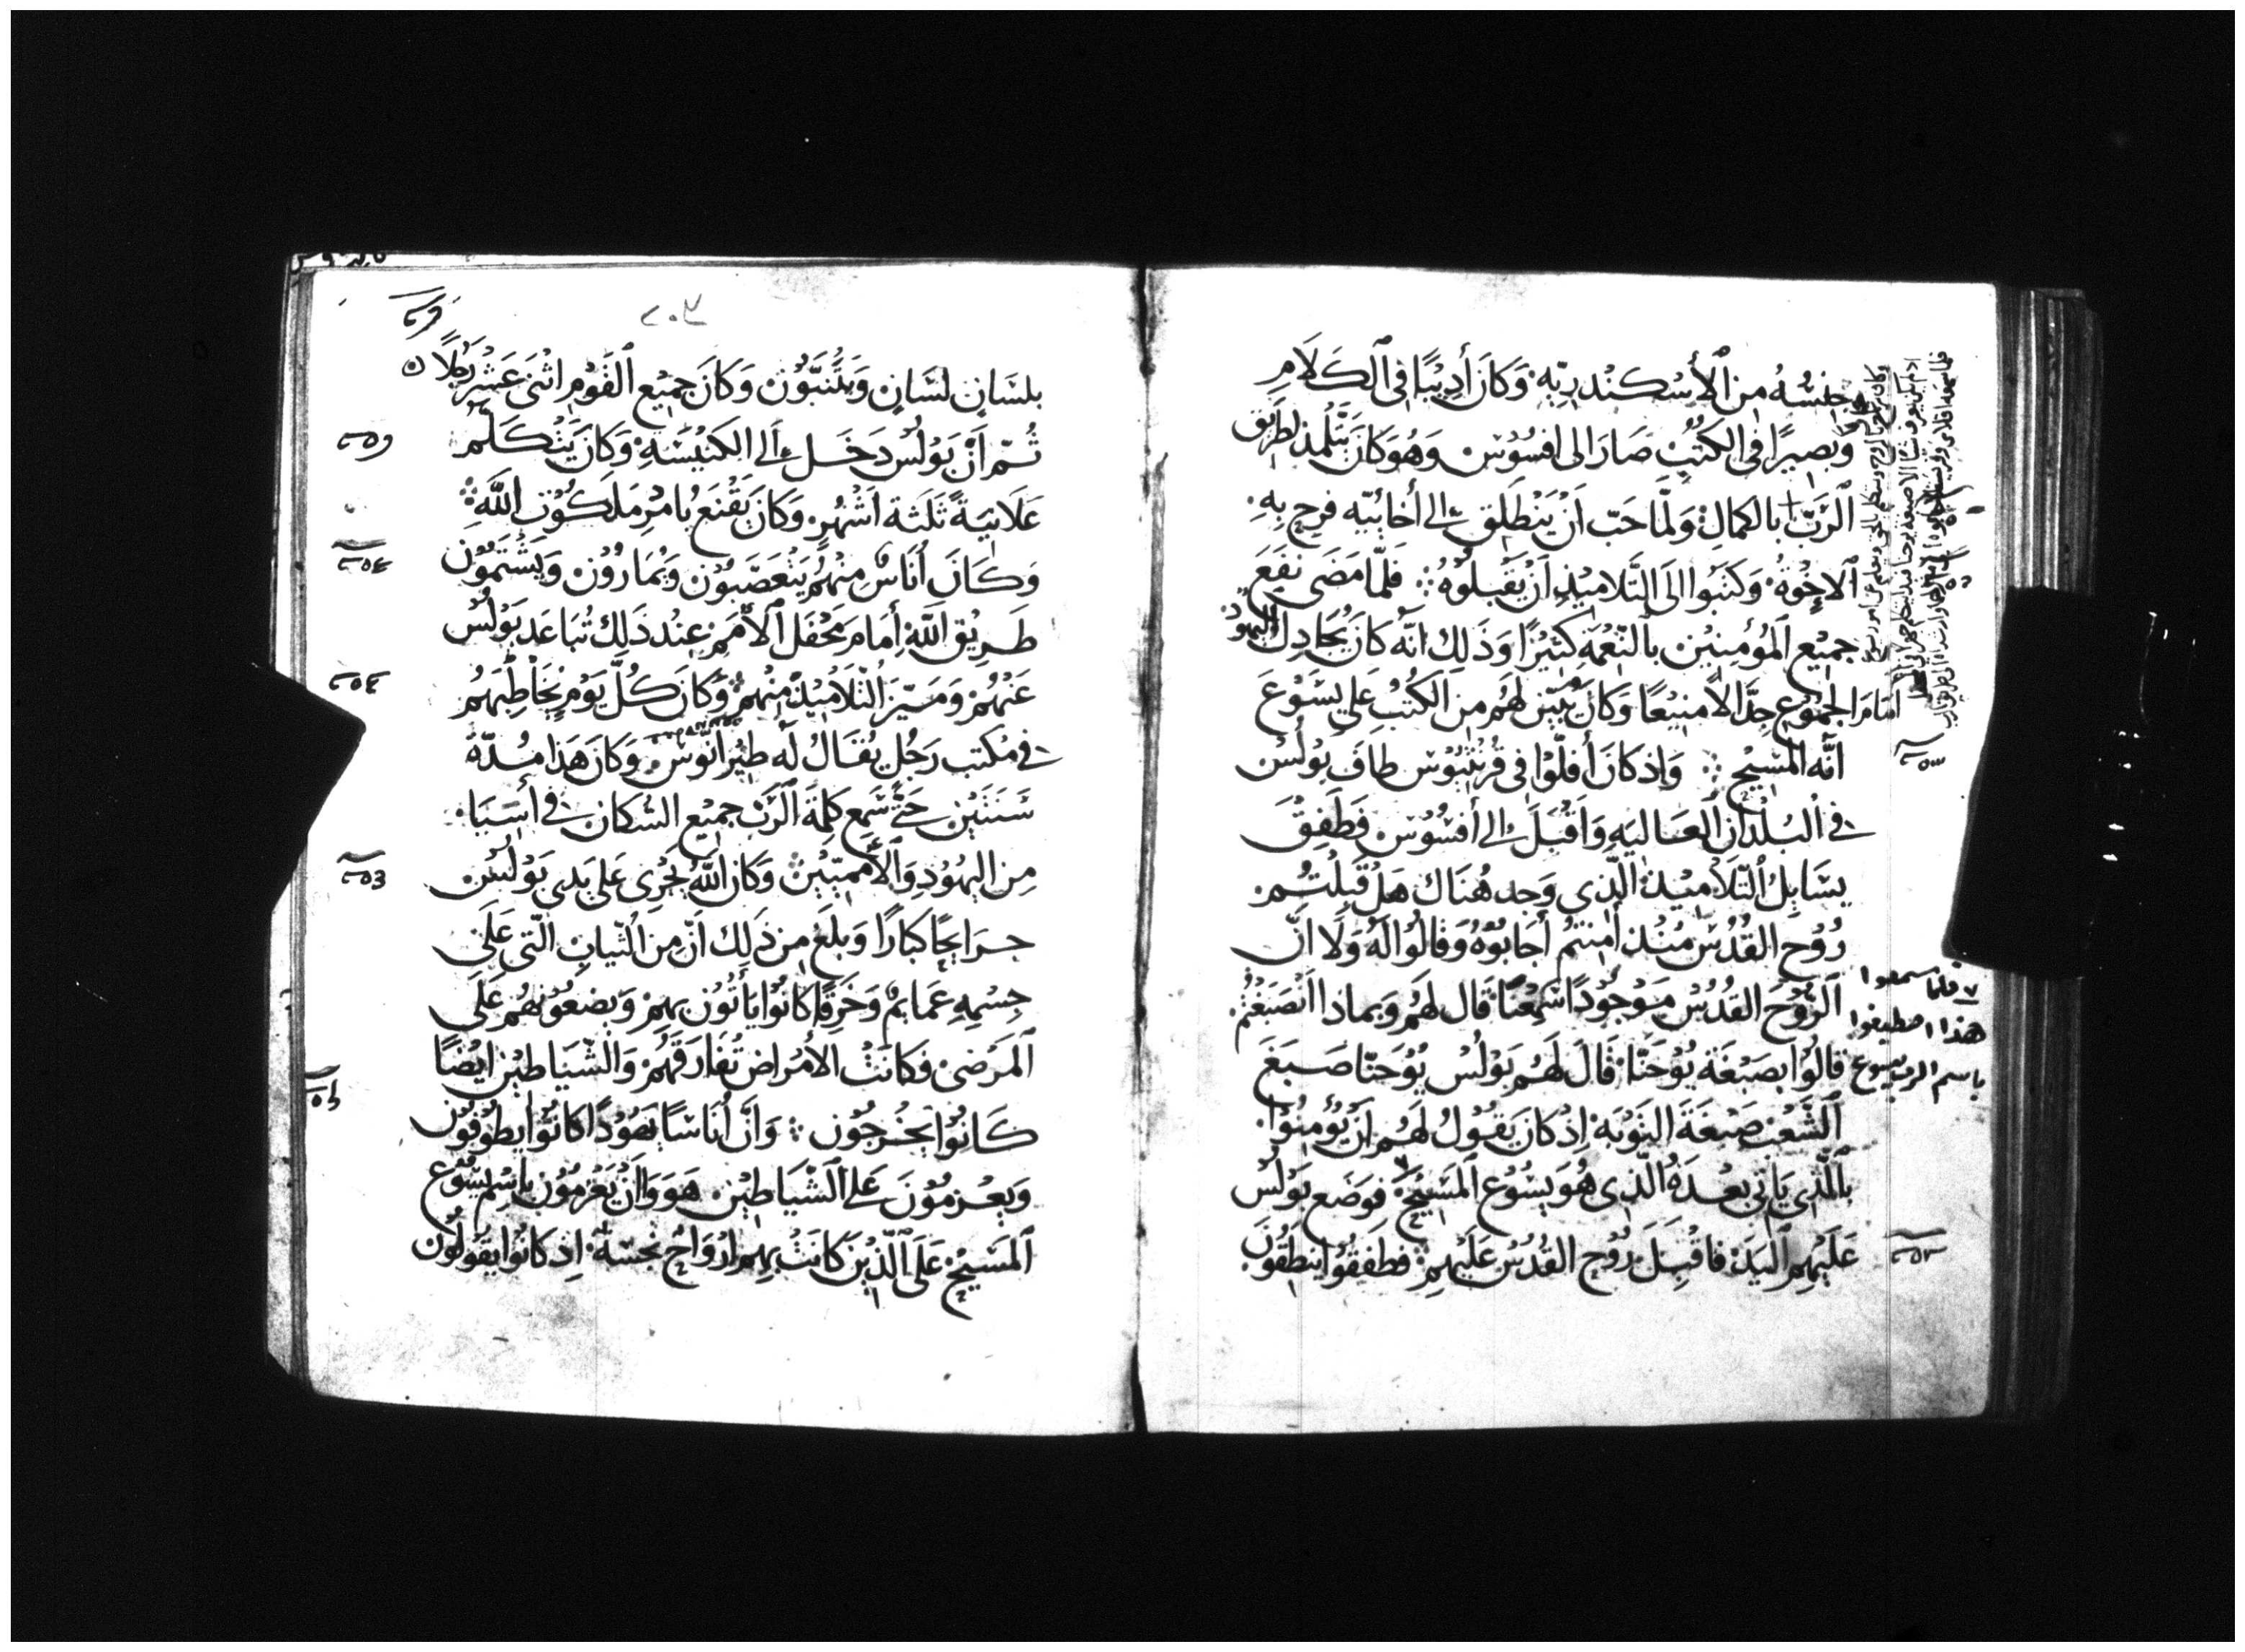 وجنسُهُ من ٱلأسْكندريّه وَكانَ أدِيْبًا في ٱلكَلَامِ
وَبصِيرًا في الكتُبِ صَارَ الى افسُوْس وَهُوَ كانَ يَتَّلْمذ لطَرِيق
ٱلرَّبّ بالكمالِ وَلمّا حَبّ اَنْ يَنْطَلِق الي أخائيّه فرح بِهِ
ٱلاخْوةُ وَكتَبُوا الى التَّلاميْذِ اَنْ يَقْبلُوْهُ فلمّا مَضَى نفَعَ
جميْع ٱلمُؤمِنِيْن بالنّعْمَةِ كثيْرًا وَذَلكَ انّه كانَ يُجَادِلُ اليهُوْدَ
امَامَ الجمُوْعِ جِدَالاً منيْعًا وَكانَ يُبَيّن لهُم من الكُتُبِ عَلي يسُوْعَ
أنَّه المَسِيْح وَاِذ كانَ أفلّوْا في قُرنثيُوْس طافَ بَوْلُسْ
في البُلْدَانِ العَاليَهِ وَاَقْبَلَ الي أفسُوْس فَطَفِقَ
يسَايِلُ التّلاَميْذ الّذِي وَجد هُنَاكَ هَلْ قَبِلْتُمْ
رُوْح القُدُسْ مُنذ اٰمنتُم أجَابُوْهُ وَقالُوْا لَهُ وَلَا انَّ
ٱلرُّوْحَ القُدُسْ مَوْجُوْدًا سَمِعْنَا قَال لهُم وَبماذا انْصَبَغْتُم
قالُوْا بصَبْغَة يُوْحَنَّا قَالَ لَهُم بَوْلُسْ يُوْحَنّا صَبَغَ
ٱلشَّعْبَ صَبْغَةَ التَوْبَة اِذ كانَ يَقُوْلُ لَهُم اَنْ يُؤْمِنُوْا
بِالّذِي يَاتي بَعْدَهُ الّذِى هُوَ يَسُوْع ٱلمَسِيْح فوَضَع بَوْلُسْ
عَلَيْهِم ٱليَدَ فاَقْبَلَ رُوْح القُدُسْ عَلَيْهِمْ فطفِقُوْا ينطقُوْنَ
فلما سمعوا
هذا اصطبغوا
باسم الرب يسوع
بلسَانٍ لسَانٍ وَيَتَنَبَّوُنْ وَكانَ جَمِيْع ٱلقَوْم اثْنَى عَشَرَ رَجُلاً
ثُمّ اَنّ بَوْلُسْ دَخَلَ الي الكَنيْسَهِ وَكانَ يَتْكَلّم
عَلَانيَةً ثَلَثَة اَشْهُر وَكانَ يَقْنَعُ بامْرِ مَلَكُوْت اللّه
وَكَانَ اُنَاسٌ منهُم يَتْعَصّبُوْن وَيُمَارُوْن وَيَشْتمُوْن
طَرِيْق اللّه أمَامَ مَحْفَل ٱلأمَمِ عِنْد ذَلكَ تَبَاعَد بَوْلُسْ
عَنْهُمْ وَمَيّزَ التّلاَميْذ منْهُمْ وَكانَ كُلَّ يَوْمٍ يُخَاطِبَهُم
في مَكتب رَجُل يُقَالُ لَه طيْرَانُوْس وَكانَ هَذا مُدّة
سَنَتَيْن حَتَّى سَمع كلمَة ٱلرَّبّ جميْع السُّكان في أسِيَا
مِن اليَهُوْد وَٱلأمَميّيْن وَكانَ اللّهُ يُجْرِي عَلى يَدَى بَوْلُسْ
جرَايحًا كبَارًا وَبلَغَ مِن ذَلك انّ مِن الثّيابِ الّتى عَلَى
جِسْمِهِ عَمَايمٌ وَخرَقًا كانُوْا يَأتُوْن بهِمْ وَيضعُوْنَهُم عَلَى
ٱلمَرْضى فَكانَتْ الأمْرَاض تُفَارِقهُمْ وَالشّيَاطيْن ايْضًا
كَانُوْا يَخْرجُوْن وَانَّ اُنَاسًا يَهُوْدًا كانُوْا يَطُوْفُوْن
وَيعْزِمُوْنَ عَلى ٱلشّيَاطِيْن هَوَوَا اَنْ يَعْزمُوْن باسْمِ يَسُوْع
ٱلمَسِيْح عَلَى ٱلّذِيْنَ كانَتْ بهِم ارْوَاحٌ نَجسَة اِذ كانُوْا يَقُوْلُوْن